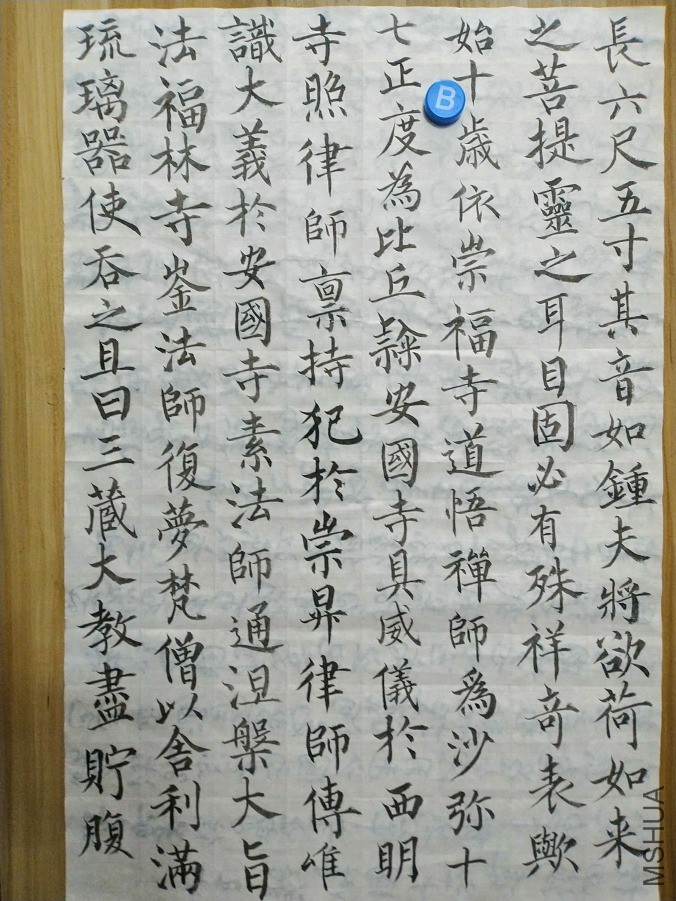 長六尺五寸其音如鍾夫將欲荷如来
之菩提靈之耳目固必有殊祥奇表歟
始十歳依崇福寺道悟禪師爲沙弥十
七正度為比丘隷安國寺具威儀於西明
寺照律師禀持犯於崇昇律師傳唯
識大義於安國寺素法師通涅槃大旨
法福林寺崟法師復夢梵僧以舎利滿
琉璃器使吞之且曰三蔵大教盡貯腹
B
MSHUA